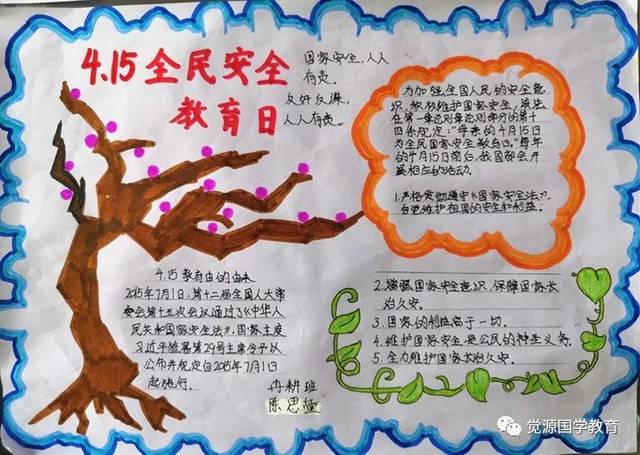 4.15全民安全
教育日
国家安全,人人
有责。
反奸反谍,
人人有责。
为加强全国人民的安全意
识,积极维护国家安全,该法
在第一章总则章总则部分的第十
四条规定:“每年的4月15日
为全民国家安全教育日。”每年
的4月15日前后,我国都会开
展相应的活动。
1.严格贯彻遵守《国家安全法》,
自觉维护祖国的安全和利益。
4.15教育由的由来
2015年7月1日,第十二届全国人大常
委会第十五次会议通过了《中华人
民共和国家安全法》,国家主席
习近平签署第29号主席令予以
公布并规定自2015年7月1日
起施行。
冉耕班
陈思
2.增强国家安全意识,保障国家长
治久安。
3.国家的利益高于一切。
4.维护国家安全是公民的神圣义务。
5.全力维护国家长治久安。
觉源国学教育